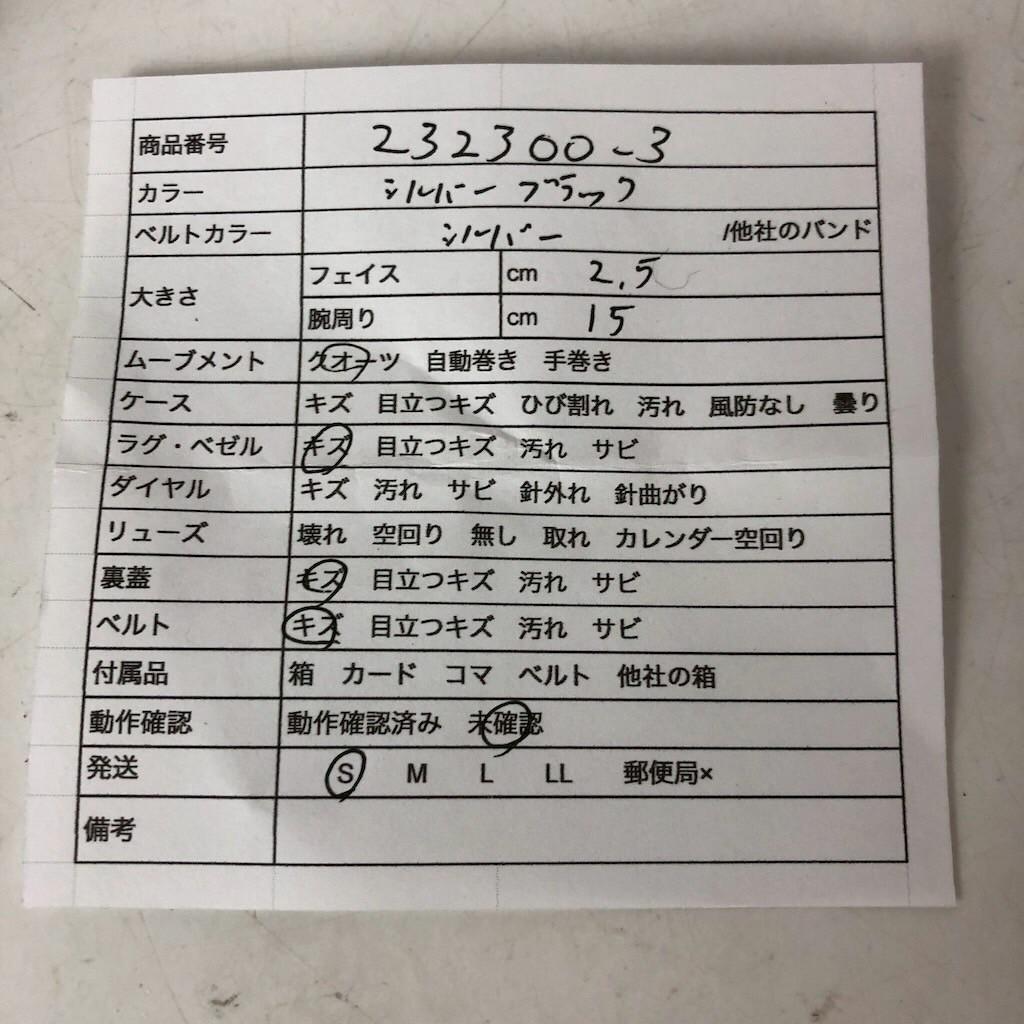 商品番号 232300-3
カラー シルバー ブラック
ベルトカラー シルバー /他社のバンド
大きさ フェイス cm 2.5
腕周り cm 15
ムーブメント クオーツ 自動巻き 手巻き
ケース キズ 目立つキズ ひび割れ 汚れ 風防なし 曇り
ラグ・ベゼル キズ 目立つキズ 汚れ サビ
ダイヤル キズ 汚れ サビ 針外れ 針曲がり
リューズ 壊れ 空回り 無し 取れ カレンダー空回り
裏蓋 キズ 目立つキズ 汚れ サビ
ベルト キズ 目立つキズ 汚れ サビ
付属品 箱 カード コマ ベルト 他社の箱
動作確認 動作確認済み 未確認
発送 S M L LL 郵便局×
備考